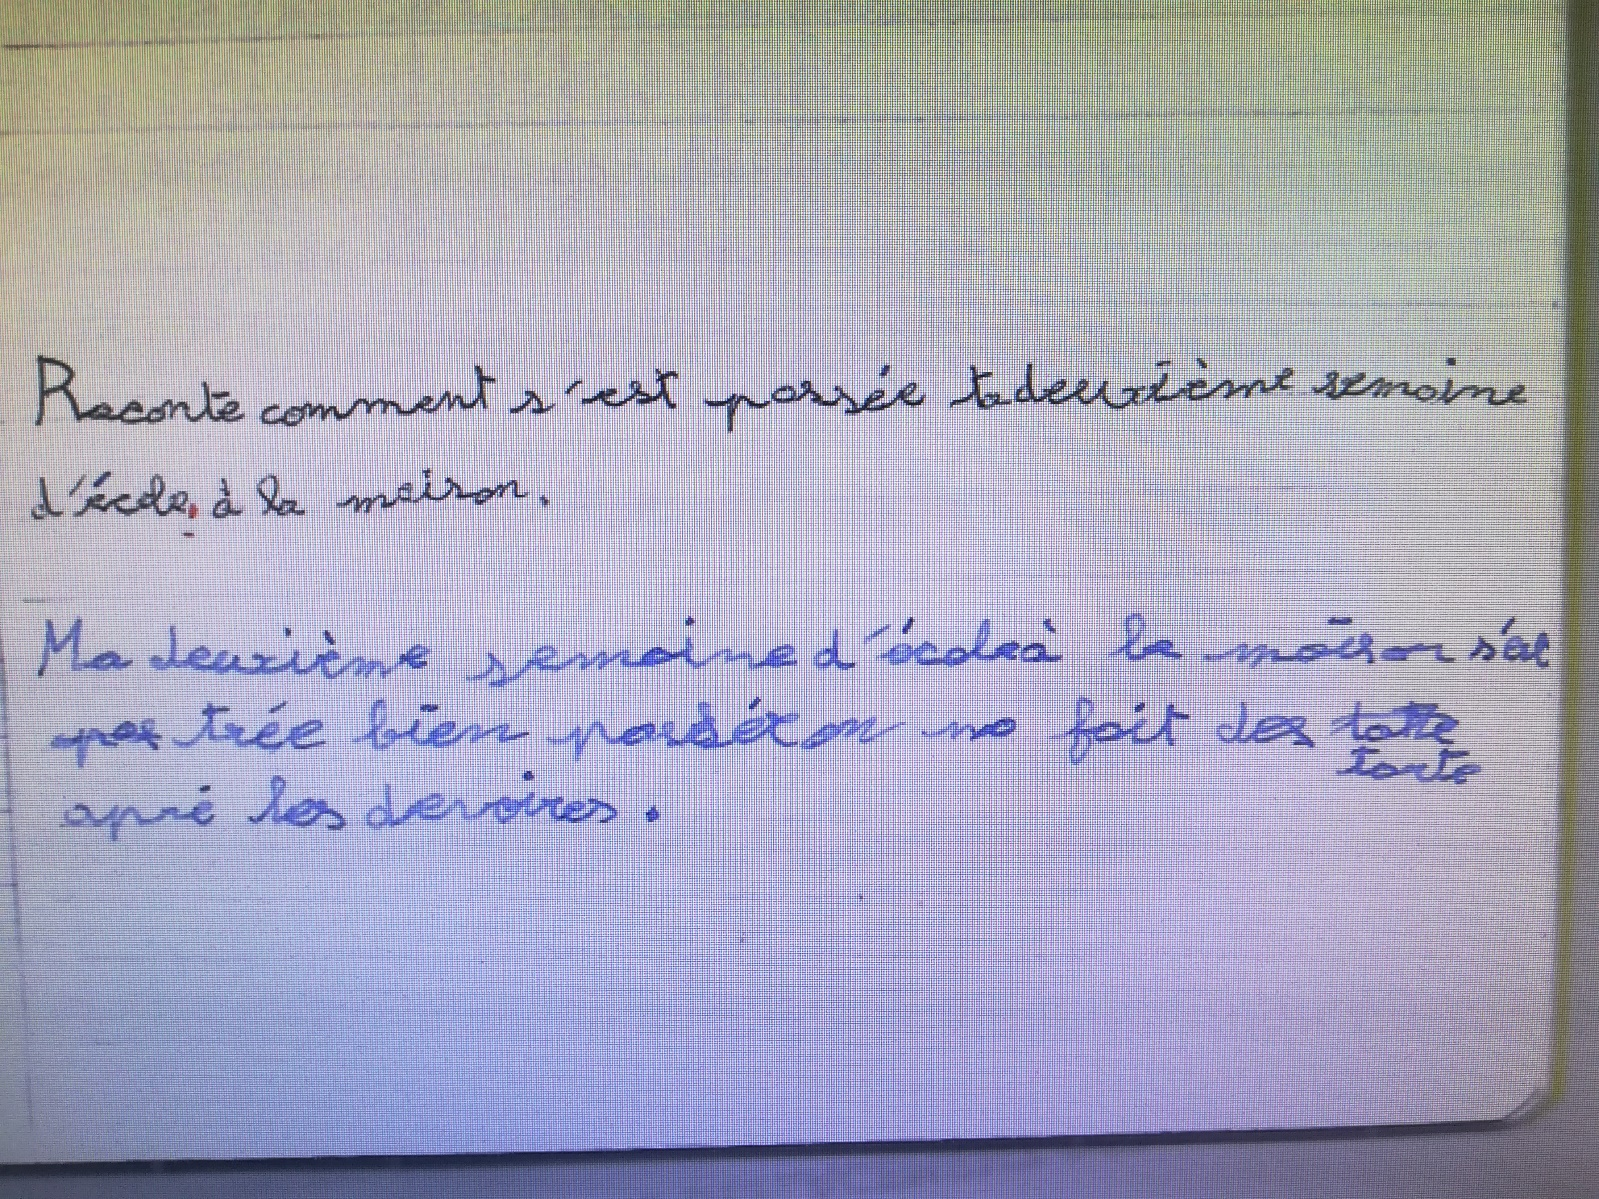 Raconte comment s'est passée ta deuxième semaine
d'école, à la maison.
Ma deuxième semaine d'école à la maison s'ai
trée bien passér on no fait des
tarte
apré les devoires.